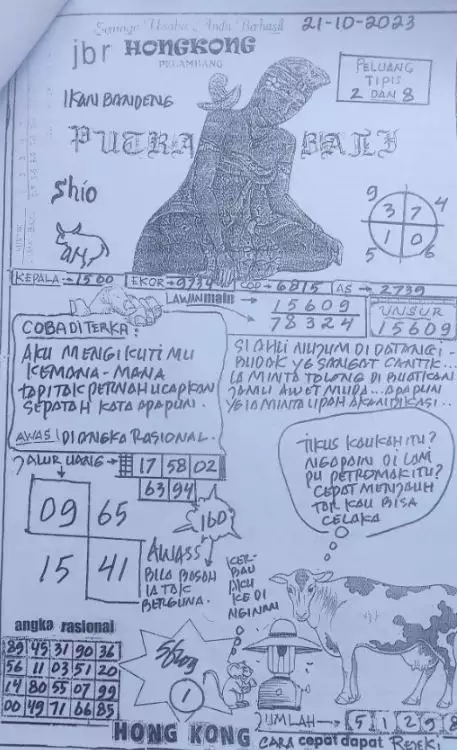 Semoga Usaha Anda Berhasil
21-10-2023
jbr HONGKONG
PELAMBANG
PELUANG
TIPIS
2 DAN 8
IKAN BANDENG
PUTRA BALI
Shio
9 3 7 4
5 1 0 6
KEPALA→1560 EKOR→9734 COP→6815 AS→2739
LAWAN main→
15609
78324
UNSUR
15609
COBA DI TERKA:
AKU MENGIKUTI MU
KEMANA-MANA
TAPI TAK PERNAH UCAPKAN
SEPATAH KATA APAPUN.
AWAS! DI ANGKA RASIONAL.
SI AHLI NUJUM DI DATANGI-
BUDAK YG SANGAT CANTIK...
IA MINTA TOLONG DI BUATKAN
JAMU AWET MUDA... APAPUN
YG IA MINTA UPAH AKAN DIKASI..
JALUR UANG→ 17 58 02
63 94
09 65
15 41
160
AWASS
BILA BASAH
IA TAK
BERGUNA.
TIKUS KAUKAH ITU?
NGAPAIN DI LAM
PU PETROMAK ITU?
CEPAT MENJAUH
TAR KAU BISA
CELAKA
KER-
BAU
AKU
KE DI
NGINAN
angka rasional
89 45 31 90 36
56 11 03 51 20
14 80 55 07 99
00 49 71 66 85
1
JUMLAH→ 5 1 2 9 8
HONG KONG CARA cepat dapat Rejeki